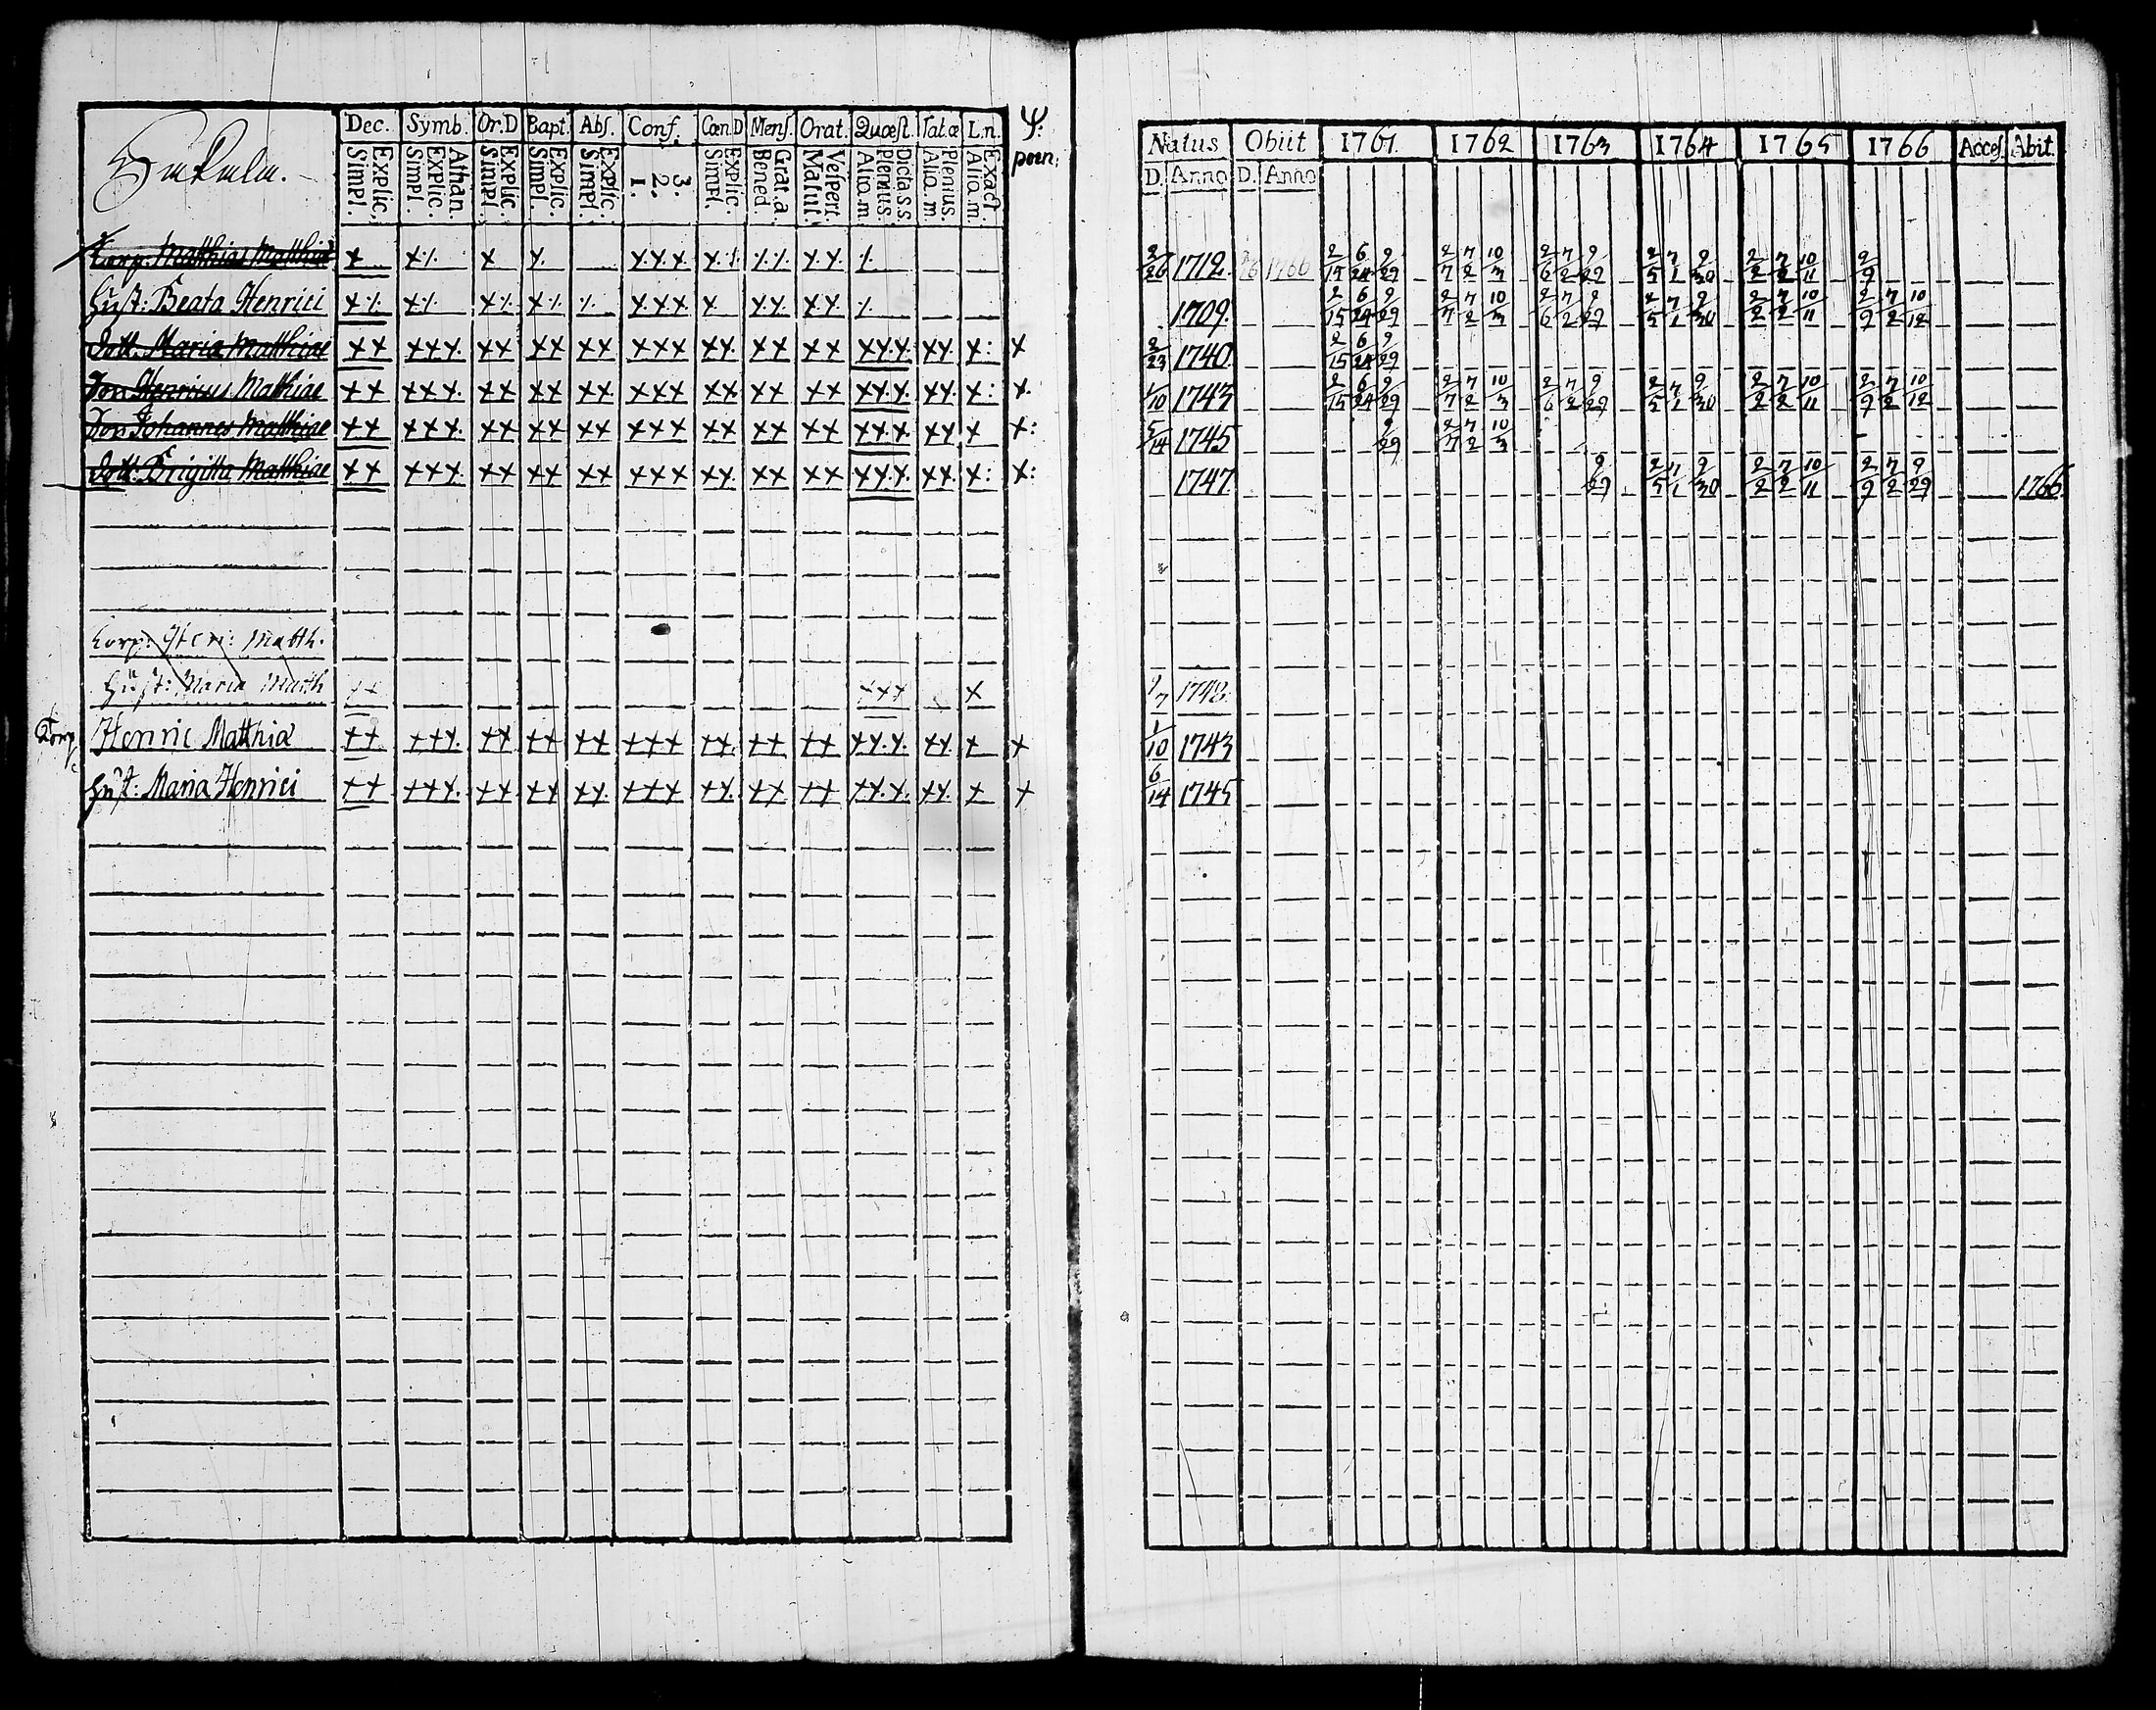 Dec. Symb. Or.D Bapt. Abſ. Conf. Cœn.D Menſ. Orat. Quæſt. Tab.œ L.n. Ψ: pœn:
Explic. Simpl. Athan. Explic. Simpl. Explic. Simpl. Explic. Simpl. Explic. Simpl. 3. 2. 1. Explic. Simpl. Grat.a. Bened. Veſpert. Matut. Dicta.s.s. Plenius. Aliq.m Plenius. Aliq.m. Exact. Aliq.m.
Natus Obiit 1761. 1762 1763 1764 1765 1766 Acceſ. Abit.
D. Anno D. Anno
Corp. Matthias Matthiæ 2/26 1712. 1766 2/15 6/24 9/29 2/7 7/2 10/3 2/6 7/2 9/29 2/5 7/1 9/30 2/2 7/2 10/11 2/9
Huſt: Beata Henrici 1709. 2/15 6/24 9/29 2/7 7/2 10/3 2/6 7/2 9/29 2/5 7/1 9/30 2/2 7/2 10/11 2/9 7/2 10/12
Dott. Maria Matthiæ 2/23 1740. 2/15 6/24 9/29
Son Henricus Mathiae 1/10 1743 2/15 6/24 9/29 2/7 7/2 10/3 2/6 7/2 9/29 2/5 7/1 9/30 2/2 7/2 10/11 2/9 7/2 10/12
Son Johannes Matthiae 5/14 1745 9/29 2/7 7/2 10/3
Dott. Brigitta Matthiae 1747. 9/29 2/5 7/1 9/30 2/2 7/2 10/11 2/9 7/2 9/29 1766.
Corp: Hen: Matth.
Huſt: Maria Matth 9/7 1742.
Corp Henric Matthiæ 1/10 1743
Huſt: Maria Henrici 6/14 1745